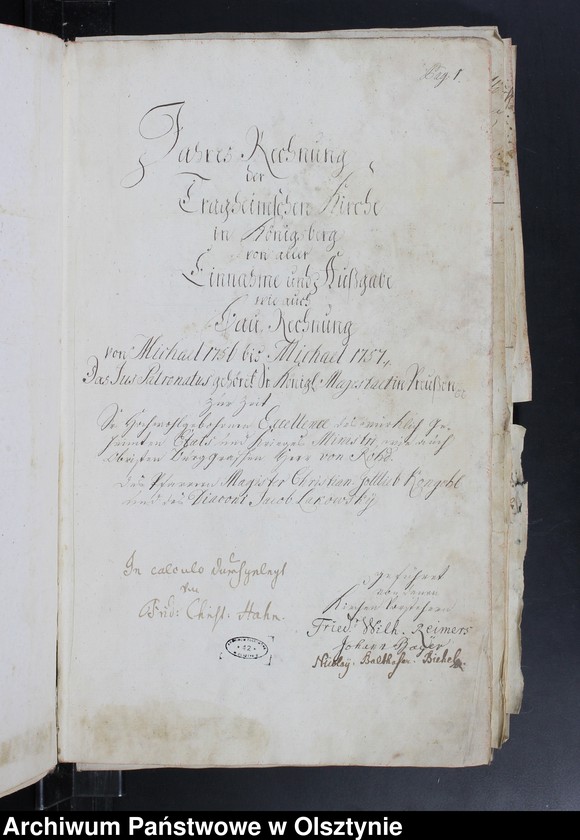 Pag. 1.
Jahres Rechnung
der
Tragheimschen Kirche
in Königsberg
von aller
Einnahme und Außgabe
wie auch
Bau Rechnung
von Michael 1756 bis Michael 1757.
Das Jus Patronatus gehöret Sr Königl. Majestaet in Preußen
zur Zeit
Sr Hochwohlgebohrnen Excellence des würklich Ge-
heimten Etats und Krieges Ministre, wie auch
Obristen Burggrafen Herr von Rohd.
Des Pfarrern Magister Christian Gottlieb
und des Diaconi Jacob Lakowsky
In calculo durchgelegt
von
Frid: Christ. Hahn.
geführet
von denen
Kirchen Vorstehern
Fried. Wilh. Reimers
Johann Bayer
Nicolay Balthasar
12
Archiwum Państwowe w Olsztynie